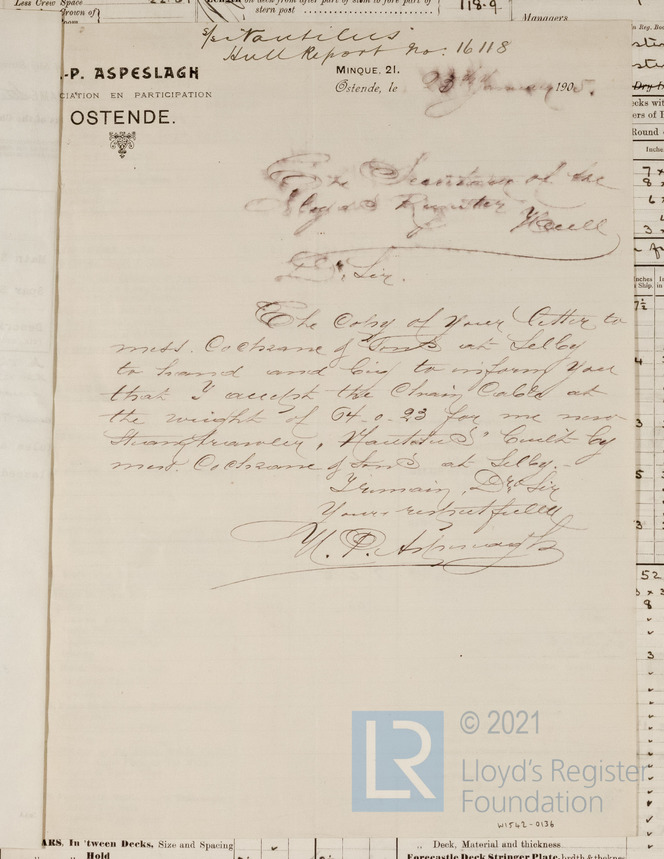 Less Crew Space
stern post
118.9
Managers
s/s "Nautilus"
Hull Report No: 16118
-P. ASPESLAGH
CIATION EN PARTICIPATION
OSTENDE.
MINQUE, 21.
Ostende, le 25th January 1905.
The Secretary of the
Lloyds Register Hull
Dr. Sir.
The Coby of your letter to
mess. Cochrane & Sons at Selby
to hand and big to inform you
that I accept the Chain Cable at
the weight of 94-0-23 for me new
Steamtrawler, "Nautilus" built by
mess. Cochrane & Sons at Selby.-
I remain, Dr. Sir
Yours respectfully
P. Aspeslagh
© 2021
LR
Lloyd's Register
Foundation
W1542-0136
ARS. In 'tween Decks, Size and Spacing
Hold
„ Deck, Material and thickness
Forecastle Deck Stringer Plate,